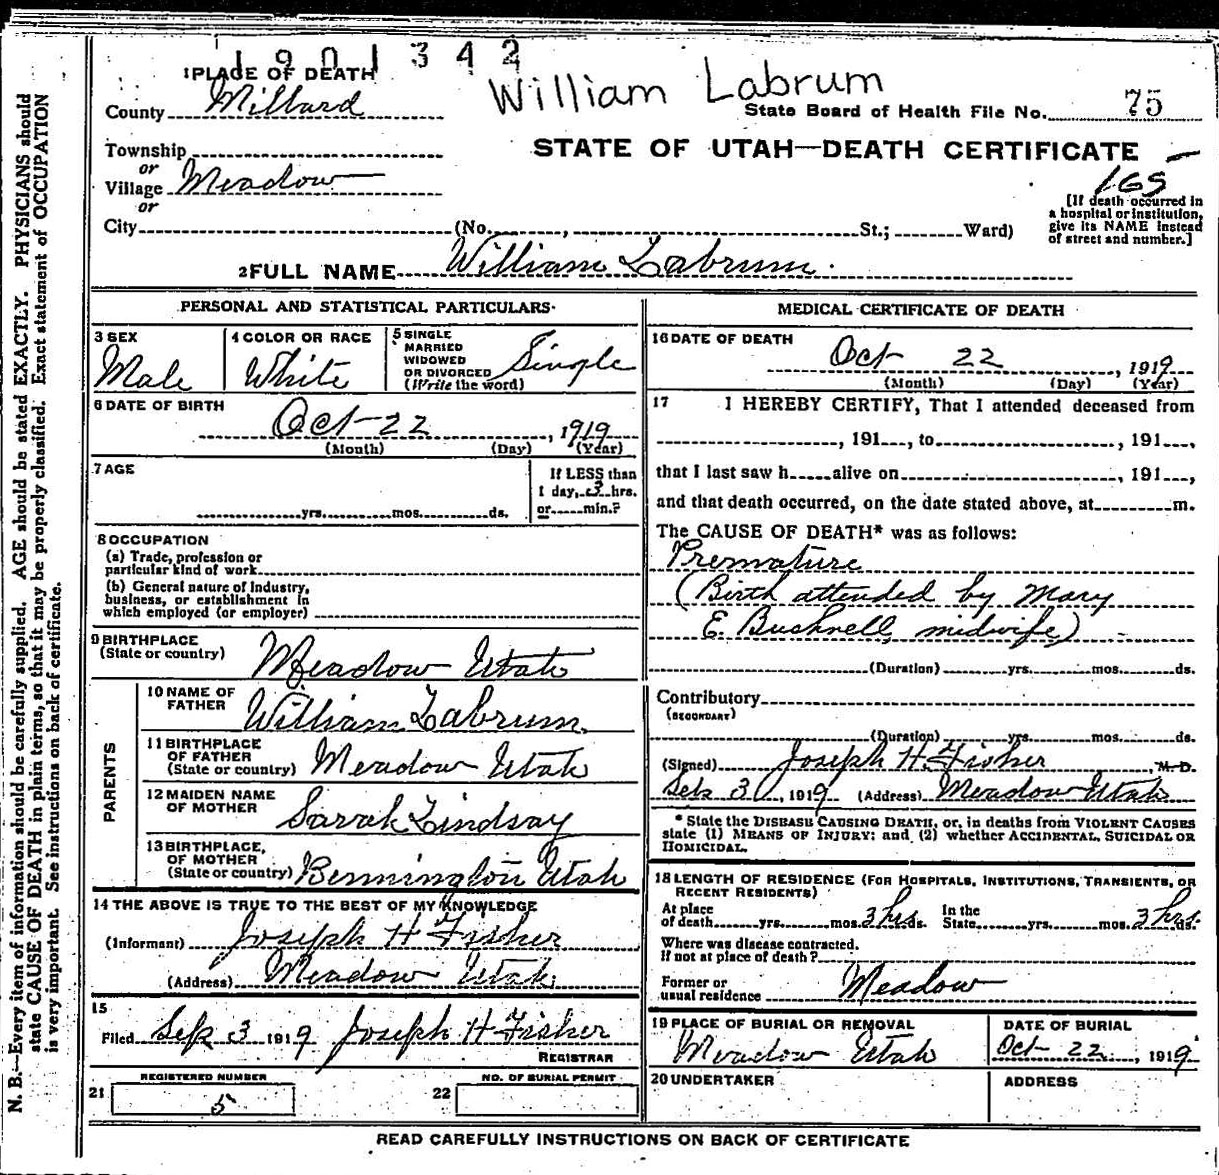 1901342
1 PLACE OF DEATH
William Labrum
County Millard
State Board of Health File No. 75
Township
STATE OF UTAH—DEATH CERTIFICATE
or
Village Meadow
165
or
[If death occurred in
a hospital or institution,
give its NAME instead
of street and number.]
City (No. , St.; Ward)
2 FULL NAME William Labrum.
PERSONAL AND STATISTICAL PARTICULARS
3 SEX
Male
4 COLOR OR RACE
White
5 SINGLE
MARRIED
WIDOWED
OR DIVORCED
(Write the word)
Single
6 DATE OF BIRTH
Oct-22, 1919
(Month) (Day) (Year)
7 AGE
If LESS than
1 day, 3 hrs.
yrs. mos. ds. or min.?
8 OCCUPATION
(a) Trade, profession or
particular kind of work
(b) General nature of industry,
business, or establishment in
which employed (or employer)
9 BIRTHPLACE
(State or country) Meadow Utah
PARENTS
10 NAME OF
FATHER William Labrum
11 BIRTHPLACE
OF FATHER
(State or country) Meadow Utah
12 MAIDEN NAME
OF MOTHER Sarah Lindsay
13 BIRTHPLACE,
OF MOTHER
(State or country) Bennington Utah
14 THE ABOVE IS TRUE TO THE BEST OF MY KNOWLEDGE
(Informant) Joseph H Fisher
(Address) Meadow Utah
15
Filed Sep 3 1919 Joseph H Fisher
REGISTRAR
REGISTERED NUMBER
21 5
NO. OF BURIAL PERMIT
22
MEDICAL CERTIFICATE OF DEATH
16 DATE OF DEATH
Oct 22, 1919
(Month) (Day) (Year)
17 I HEREBY CERTIFY, That I attended deceased from
, 191 , to , 191 ,
that I last saw h alive on , 191 ,
and that death occurred, on the date stated above, at m.
The CAUSE OF DEATH* was as follows:
Premature
(Birth attended by Mary
E. Bushnell, midwife)
(Duration) yrs. mos. ds.
Contributory
(SECONDARY)
(Duration) yrs. mos. ds.
(Signed) Joseph H. Fisher, M. D.
Sep 3, 1919 (Address) Meadow Utah
* State the DISEASE CAUSING DEATH, or, in deaths from VIOLENT CAUSES
state (1) MEANS OF INJURY; and (2) whether ACCIDENTAL, SUICIDAL OR
HOMICIDAL.
18 LENGTH OF RESIDENCE (FOR HOSPITALS, INSTITUTIONS, TRANSIENTS, OR
RECENT RESIDENTS)
At place
of death yrs. mos. 3 hrs. ds.
In the
State yrs. mos. 3 hrs. ds.
Where was disease contracted.
If not at place of death?
Former or
usual residence Meadow
19 PLACE OF BURIAL OR REMOVAL
Meadow Utah
DATE OF BURIAL
Oct 22, 1919
20 UNDERTAKER
ADDRESS
READ CAREFULLY INSTRUCTIONS ON BACK OF CERTIFICATE
N. B.—Every item of information should be carefully supplied. AGE should be stated EXACTLY. PHYSICIANS should
state CAUSE OF DEATH in plain terms, so that it may be properly classified. Exact statement of OCCUPATION
is very important. See instructions on back of certificate.